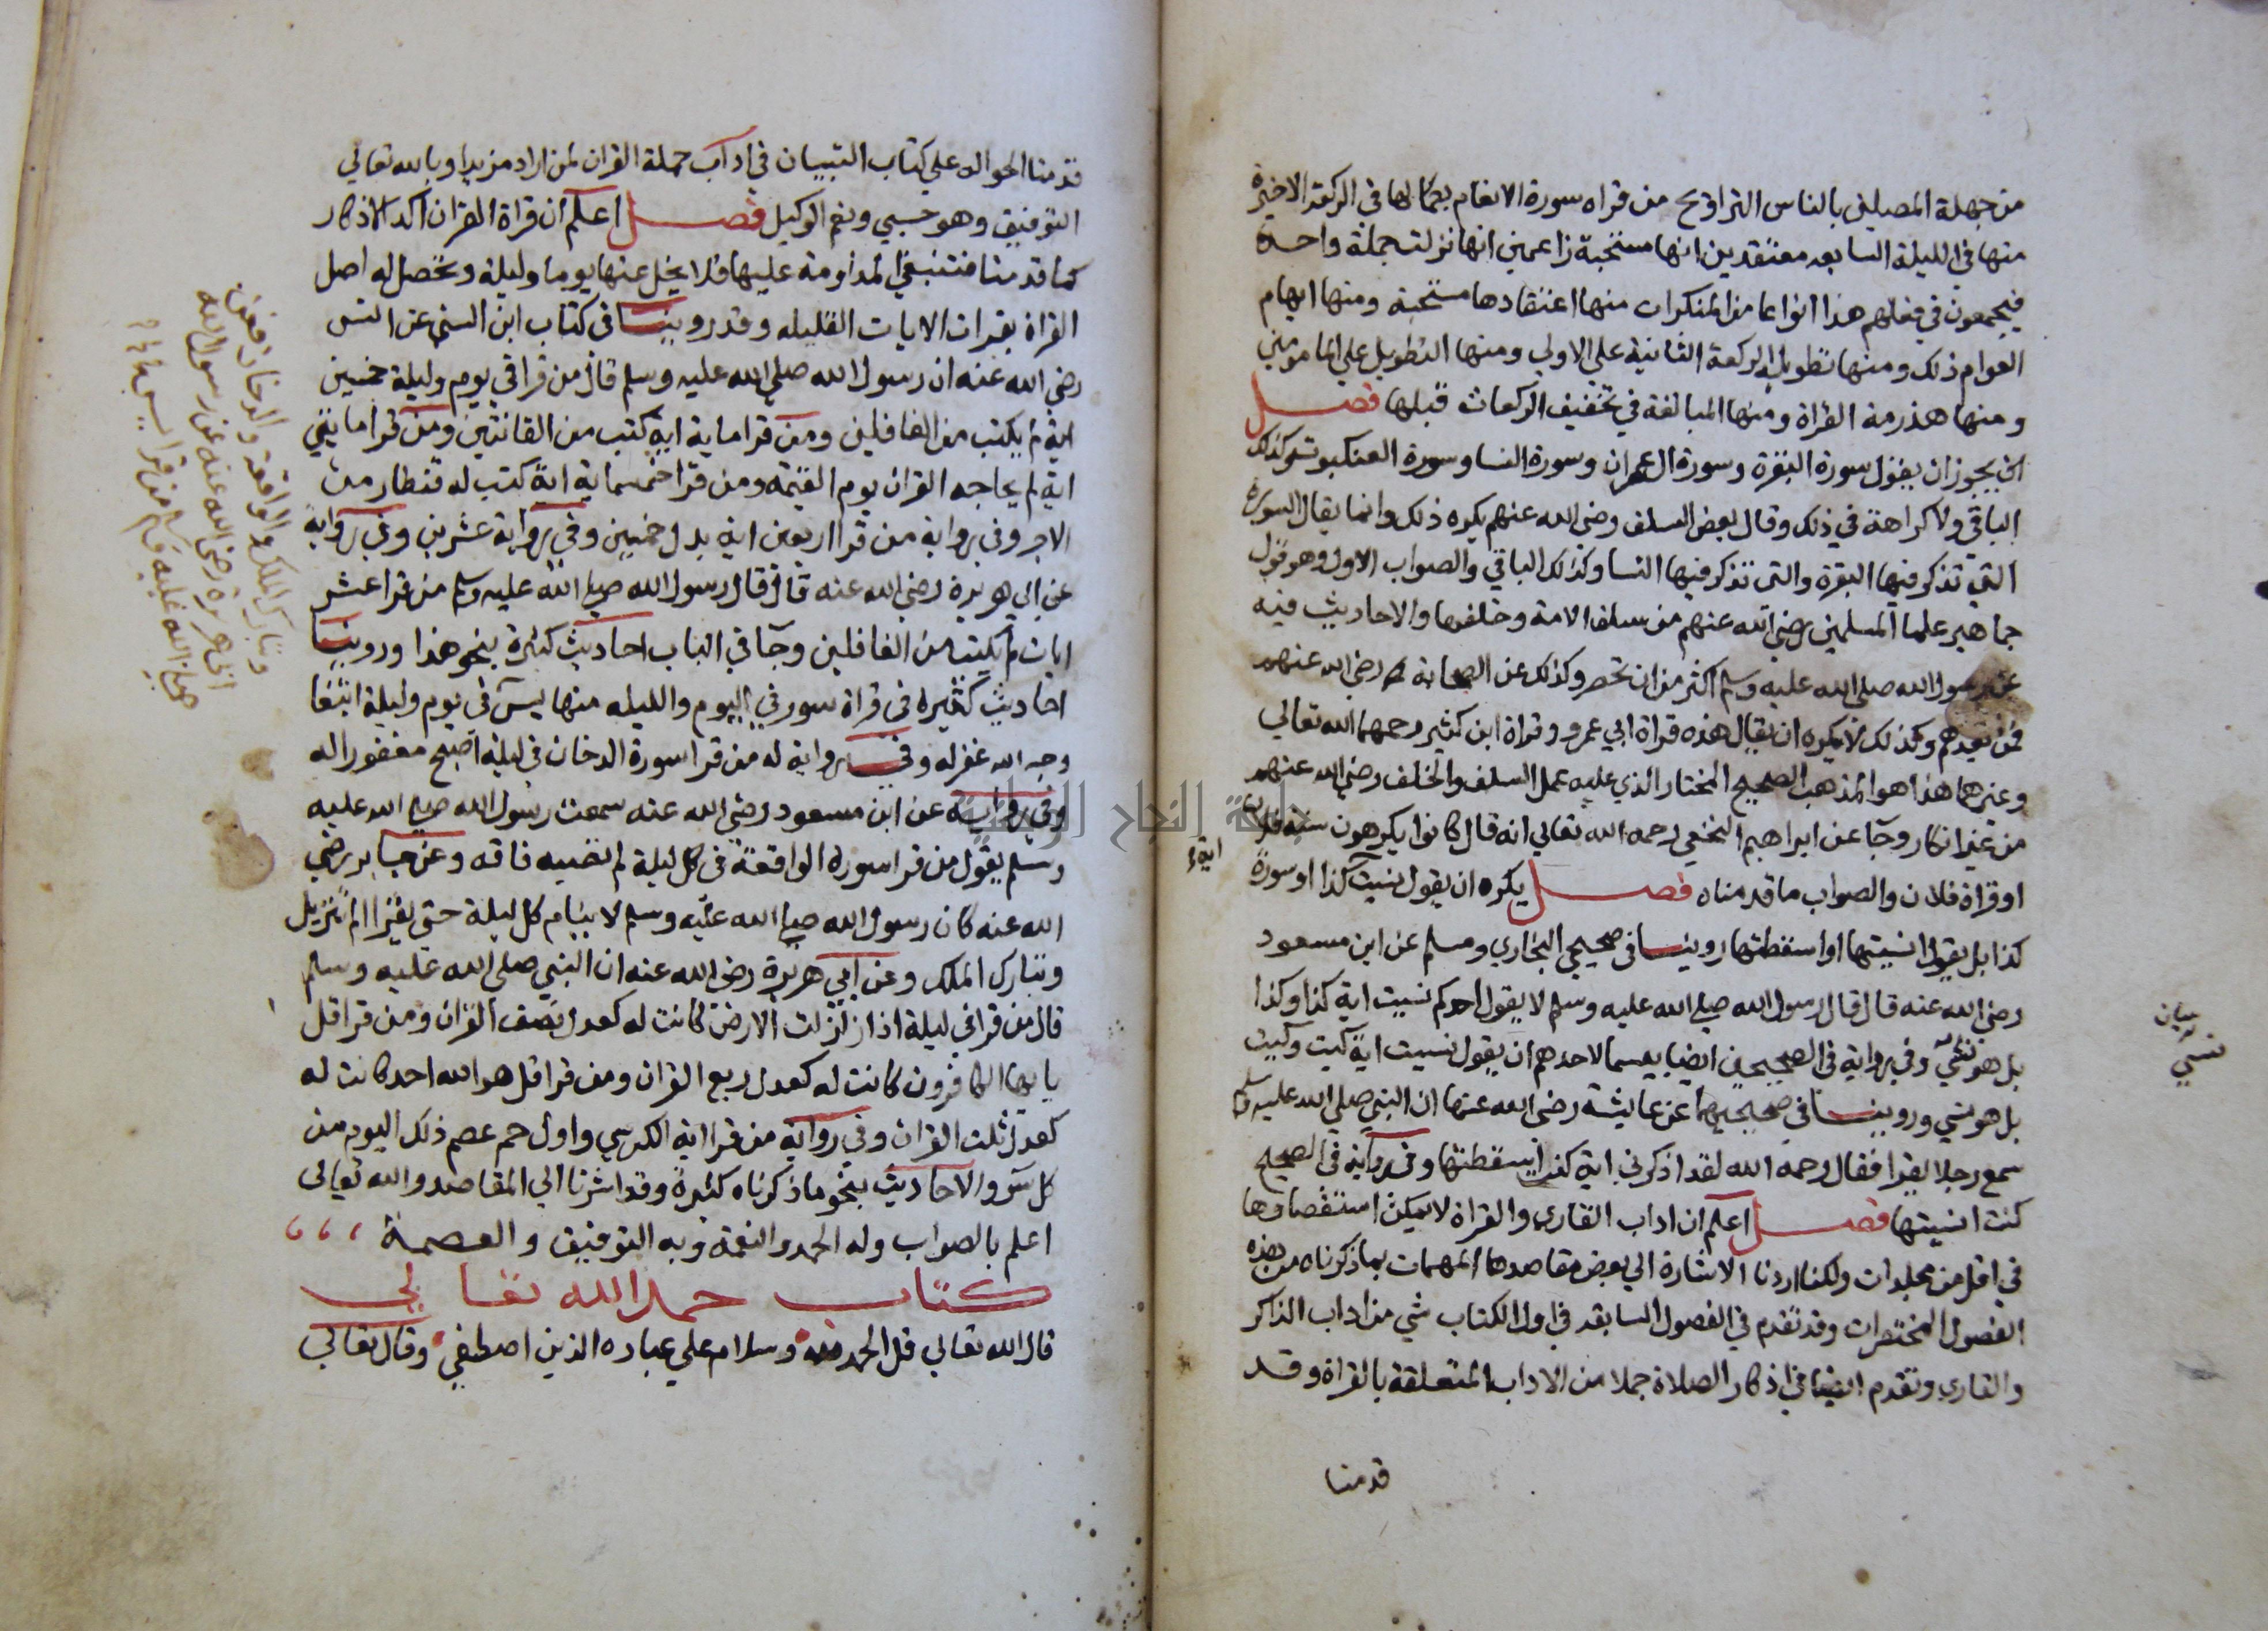 من جهلة المصلين بالناس التراويح من قراه سورة الانعام بكمالها في الركعة الاخيرة
منها في الليلة السابعه معتقدين انها مستحبة زاعمين انها نزلت جملة واحدة
فيجمعون في فعلهم هذا انواعا من المنكرات منها اعتقادها مستحبة ومنها ايهام
العوام ذلك ومنها تطويل الركعة الثانية على الاولي ومنها التطويل علي المامومين
ومنها هذرمة القراة ومنها المبالغة في تخفيف الركعات قبلها فصل
يجوز ان يقول سورة البقرة وسورة ال عمران وسورة النسا وسورة العنكبوت وكذلك
الباقي ولا كراهة في ذلك وقال بعض السلف رضي الله عنهم يكره ذلك وانما يقال السورة
التي تذكر فيها البقرة والتى تذكر فيها النسا وكذلك الباقي والصواب الاول وهو قول
جماهير علما المسلمين رضي الله عنهم من سلف الامة وخلفها والاحاديث فيه
عن رسول الله صلى الله عليه وسلم اكثر من ان تحصر وكذلك عن الصحابة رضي الله عنهم
فمن بعدهم وكذلك لا يكره ان يقال هذه قراة ابي عمرو وقراة ابن كثير رحمهما الله تعالي
وغيرهما هذا هو المذهب الصحيح المختار الذي عليه عمل السلف والخلف رضي الله عنهم
من غير انكار وجآ عن ابراهيم النخعي رحمه الله تعالي انه قال كانوا يكرهون سنة فلان
او قراة فلان والصواب ما قدمناه فصل يكره ان يقول نسيت كذا او سورة
اية
كذا بل يقول انسيتها او اسقطتها روينا في صحيحي البخاري ومسلم عن ابن مسعود
رضي الله عنه قال قال رسول الله صلى الله عليه وسلم لا يقول احدكم نسيت اية كذا وكذا
بل هو نسّي وفي رواية في الصحيحين ايضا بيسما لاحدهم ان يقول نسيت اية كيت وكيت
بيان
نسي
بل هو نسي وروينا في صحيحيهما عن عايشة رضي الله عنها ان النبي صلي الله عليه وسلم
سمع رجلا يقرا فقال رحمه الله لقد اذكرني اية كنت اسقطتها وفي رواية في الصحيح
كنت انسيتها فصل اعلم ان اداب القاري والقراة لا يمكن استقصاوها
في اقل من مجلدات ولكنا اردنا الاشارة الي بعض مقاصدها المهمات بما ذكرناه من هذه
الفصول المختصرات وقد تقدم في الفصول السابقه في اول الكتاب شي من اداب الذاكر
والقاري وتقدم ايضا في اذكار الصلاة جملا من الاداب المتعلقة بالقراة وقد
قدمنا
قدمنا الحواله علي كتاب التبيان في اداب حملة القران لمن اراد مزيدا وبالله تعالي
التوفيق وهو حسبي ونعم الوكيل فصل اعلم ان قراة القران اكد الاذكار
كما قدمنا فتنبغي المداومة عليها فلا يخل عنها يوما وليلة وتحصل له اصل
القراة بقران الايات القليله وقد روينا في كتاب ابن السني عن انس
رضي الله عنه ان رسول الله صلى الله عليه وسلم قال من قرا في يوم وليلة خمسين
اية لم يكتب من الغافلين ومن قرا ماية اية كتب من القانتين ومن قرا مايتي
اية لم يحاجه القران يوم القيمة ومن قرا خمسماية اية كتب له قنطار من
الاجر وفي رواية من قرا اربعين اية بدل خمسين وفي رواية عشرين وفي رواية
عن ابي هريرة رضي الله عنه قال قال رسول الله صلى الله عليه وسلم من قرا عشر
ايات لم يكتب من الغافلين وجآ في الباب احاديث كثيرة بنحو هذا وروينا
احاديث كثيره في قراة سور في اليوم والليله منها يس في يوم وليلة ابتغا
وجه الله غفر له وفي رواية له من قرا سورة الدخان في ليلة اصبح مغفورا له
وفي رواية عن ابن مسعود رضي الله عنه سمعت رسول الله صلى الله عليه
وسلم يقول من قرا سورة الواقعة في كل ليلة لم تصبه فاقه وعن جابر رضي
الله عنه كان رسول الله صلى الله عليه وسلم لا ينام كل ليلة حتي يقرا الم تنزيل
وتبارك الملك وعن ابي هريرة رضي الله عنه ان النبي صلى الله عليه وسلم
قال من قرا في ليلة اذا زلزلت الارض كانت له كعدل نصف القران ومن قرا قل
يا يها الكافرون كانت له كعدل ربع القران ومن قرا قل هو الله احد كانت له
كعدل ثلث القران وفي رواية من قرا اية الكرسي واول حم عصم ذلك اليوم من
كل سو والاحاديث بنحو ما ذكرناه كثيرة وقد اشرنا الي المقاصد والله تعالى
اعلم بالصواب وله الحمد والنعمة وبه التوفيق والعصمة ، ، ،
كتاب حمد الله تعالي
قال الله تعالي قل الحمد لله وسلام علي عباده الذين اصطفي وقال تعالي
وتبارك الملك والواقعة والدخان فعن
ابي هريرة رضي الله عنه عن رسول الله
صلى الله عليه وسلم من قرا يس
جامعة النجاح الوطنية